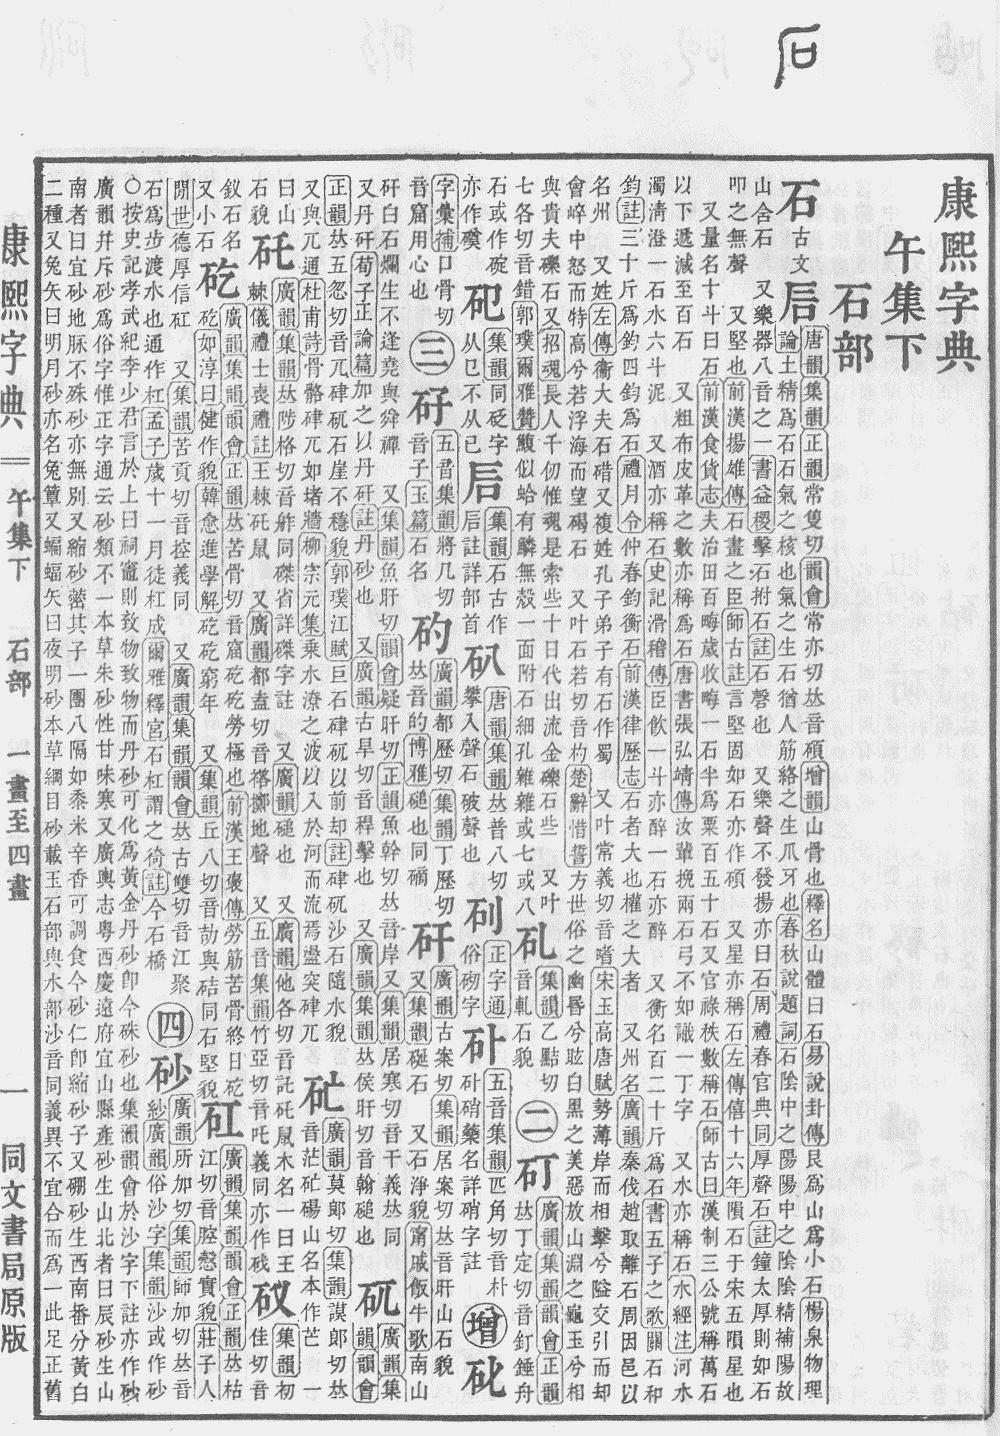 石
康熙字典
午集下
石部
石古文𠩺
唐韻集韻正韻常隻切韻會常亦切𠀤音碩增韻山骨也釋名山體曰石易說卦傳艮爲山爲小石楊泉物理
論土精爲石石氣之核也氣之生石猶人筋絡之生爪牙也春秋說題詞石陰中之陽陽中之陰陰精補陽故
山含石 又樂器八音之一書益稷擊石拊石註石磬也 又樂聲不發揚亦曰石周禮春官典同厚聲石註鐘太厚則如石
叩之無聲 又堅也前漢揚雄傳石畫之臣師古註言堅固如石亦作碩 又星亦稱石左傳僖十六年隕石于宋五隕星也
又量名十斗曰石前漢食貨志夫治田百畮歲收畮一石半爲粟百五十石又官祿秩數稱石師古曰漢制三公號稱萬石
以下遞減至百石 又粗布皮革之數亦稱爲石唐書張弘靖傳汝輩挽兩石弓不如識一丁字 又水亦稱石水經注河水
濁淸澄一石水六斗泥 又酒亦稱石史記滑稽傳臣飮一斗亦醉一石亦醉 又衡名百二十斤爲石書五子之歌關石和
鈞註三十斤爲鈞四鈞爲石禮月令仲春鈞衡石前漢律歷志石者大也權之大者 又州名廣韻秦伐趙取離石周因邑以
名州 又姓左傳衞大夫石碏又複姓孔子弟子有石作蜀 又叶常義切音嗜宋玉高唐賦勢薄岸而相擊兮隘交引而却
會崪中怒而特高兮若浮海而望碣石 又叶石若切音杓楚辭惜誓方世俗之幽昏兮眩白黑之美惡放山淵之龜玉兮相
與貴夫礫石又招魂長人千仞惟魂是索些十日代出流金礫石些 又叶
七各切音錯郭璞爾雅贊鰒似蛤有鱗無殻一面附石細孔雜雜或七或八
石或作䂖
亦作磺
礼集韻乙點切
音軋石貌
二
矴𠀤丁定切音釘錘舟
廣韻集韻韻會正韻
集韻同砭字
从巳不从已
𠩺集韻石古作
𠩺註詳部首
矾唐韻集韻𠀤普八切
攀入聲石破聲也
正字通
俗硎字
五音集韻匹角切音朴
䂆硝藥名詳硝字註
增
字彙補口骨切
音窟用心也
三
矷五音集韻將几切
音子玉篇石名
䂆廣韻都歷切集韻丁歷切
𠀤音的博雅䃌也同䃍
矸廣韻古案切集韻居案切𠀤音旰山石貌
又集韻硟石 又石淨貌甯戚飯牛歌南山
矸白石爛生不逢堯與舜禪 又集韻魚旰切韻會疑旰切正韻魚幹切𠀤音岸又集韻居寒切音干義𠀤同
又丹矸荀子正論篇加之以丹矸註丹砂也 又廣韻古旱切音稈擊也 又廣韻集韻𠀤侯旰切音翰䃌也
矹廣韻集
韻韻會
正韻𠀤五忽切音兀硉矹石崖不穩貌郭璞江賦巨石硉矹以前却註硉矹沙石隨水貌
又與兀通杜甫詩骨骼硉兀如堵牆柳宗元集乗水潦之波以入於河而流焉盪突硉兀
䂃廣韻莫郞切集韻謨郞切𠀤
音茫䂃碭山名本作芒 一
曰山
石貌
矺廣韻集韻𠀤陟格切音舴同磔省詳磔字註 又廣韻䃌也 又廣韻他各切音託矺鼠木名一曰王
棘儀禮士喪禮註王棘矺鼠 又廣韻都盍切音㯓擲地聲 又五音集韻竹亞切音咤義同亦作䂳
䂘集韻初
佳切音
釵石名
又小石
矻廣韻集韻韻會正韻𠀤苦骨切音窟矻矻勞極也前漢王褒傳勞筋苦骨終日矻
矻如淳曰健作貌韓愈進學解矻矻窮年 又集韻丘八切音劼與硈同石堅貌
矼廣韻集韻韻會正韻𠀤枯
江切音腔慤實貌莊子人
閒世德厚信矼 又集韻苦貢切音控義同 又廣韻集韻韻會𠀤古雙切音江聚
石爲步渡水也通作杠孟子歲十一月徒杠成爾雅釋宮石杠謂之徛註今石橋
四
砂廣韻所加切集韻師加切𠀤音
紗廣韻俗沙字集韻沙或作砂
○按史記孝武紀李少君言於上曰祠竈則致物致物而丹砂可化爲黃金丹砂卽今硃砂也集韻韻會於沙字下註亦作砂
廣韻幷斥砂爲俗字惟正字通云砂類不一本草朱砂性甘味寒又廣輿志粤西慶遠府宜山縣產砂生山北者曰辰砂生山
南者曰宜砂地脈不殊砂亦無別又縮砂䔲其子一團八隔如黍米辛香可調食今砂仁卽縮砂子又硼砂生西南番分黃白
二種又兔矢曰明月砂亦名兔蕈又蝙蝠矢曰夜明砂本草綱目砂載玉石部與水部沙音同義異不宜合而爲一此足正舊
康熙字典
午集下
石部
一畫至四畫
一
同文書局原版